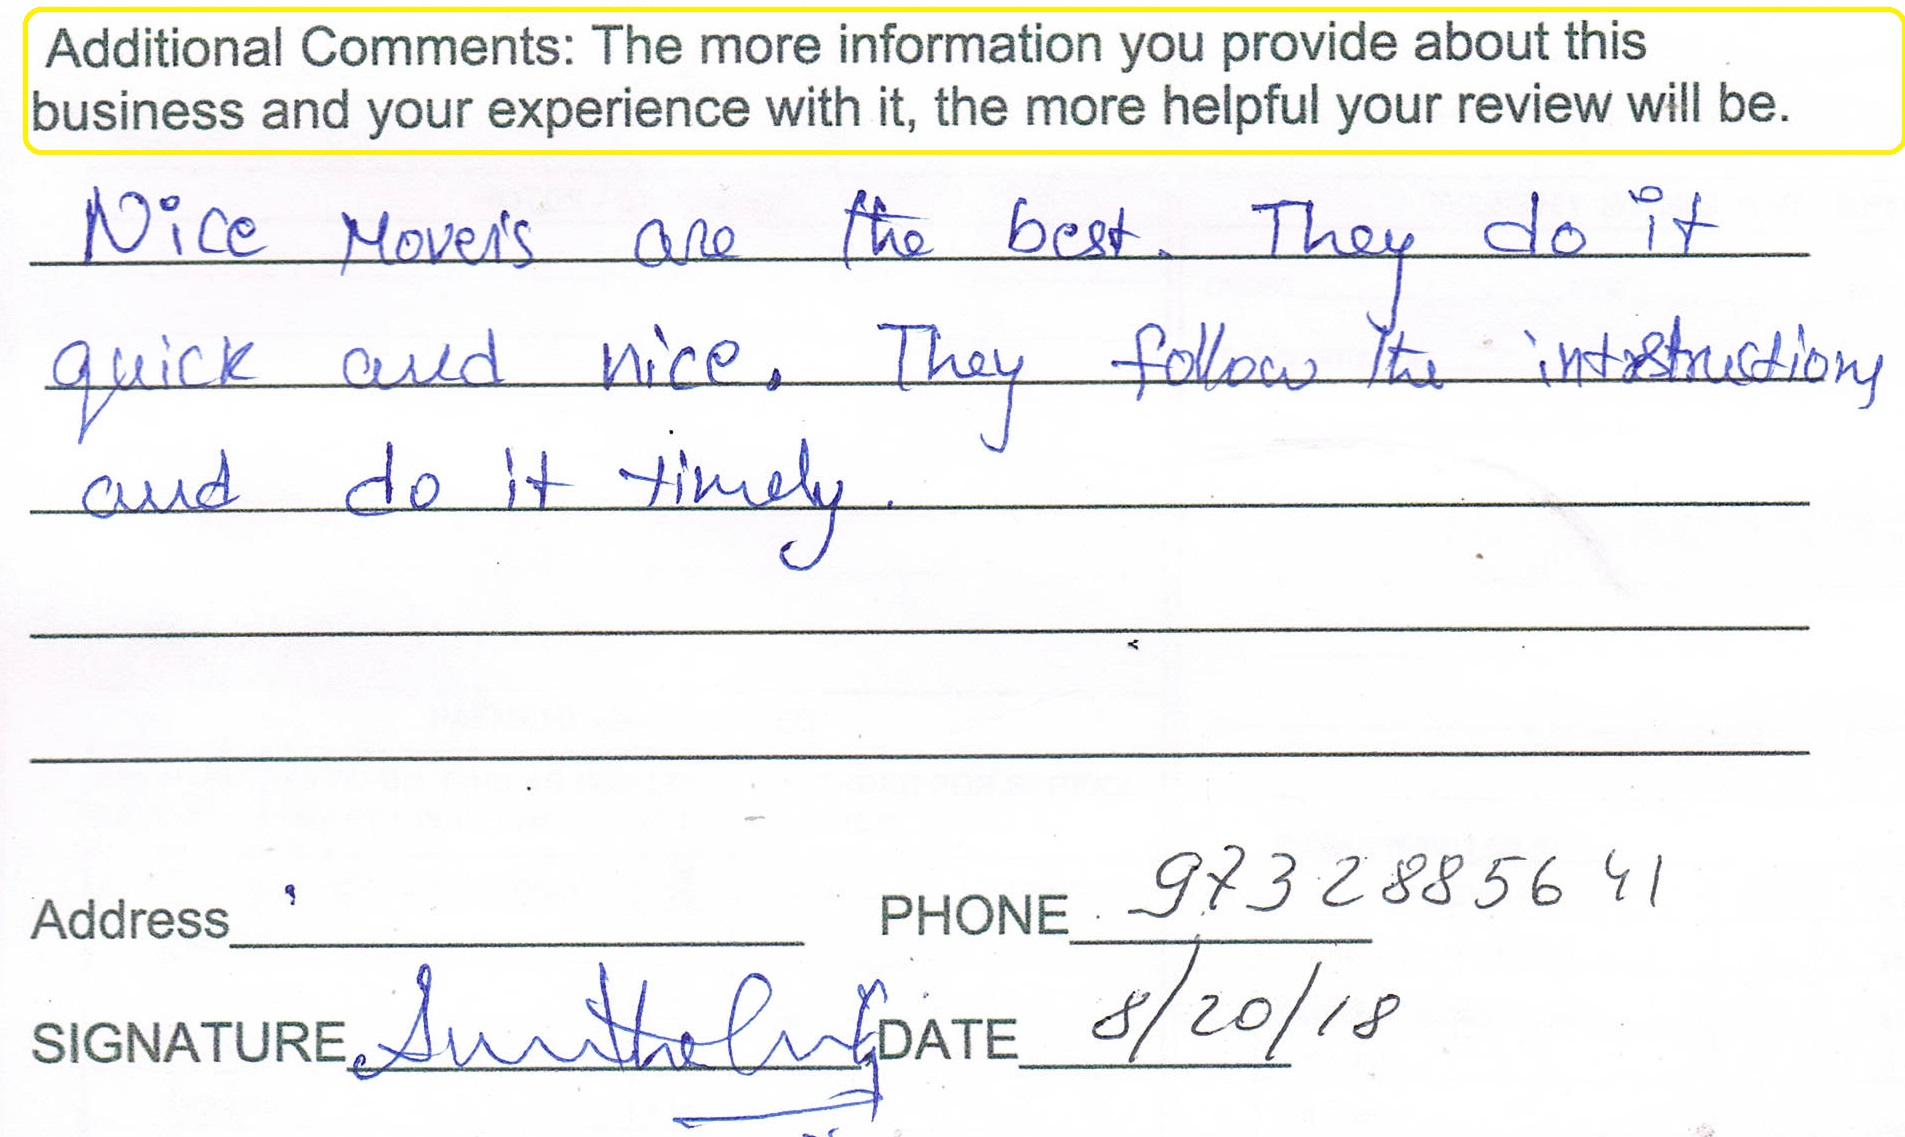 Additional Comments: The more information you provide about this
business and your experience with it, the more helpful your review will be.
Nice Mover's are the best. They do it
quick and nice. They follow the intstructions
and do it timely.
Address PHONE 9732885641
SIGNATURE DATE 8/20/18